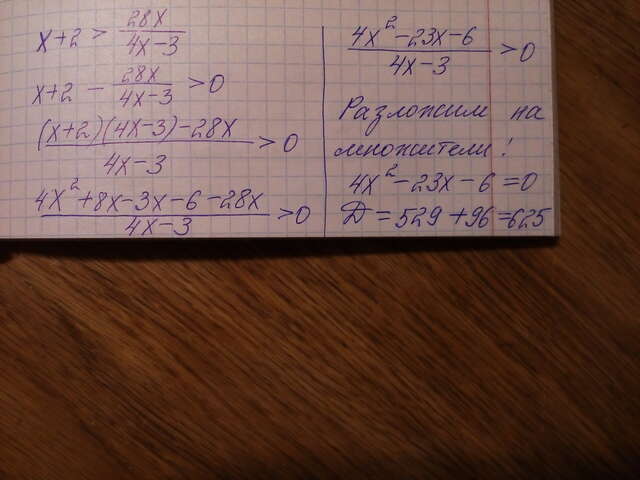 x+2 > 28x/(4x-3)
x+2 - 28x/(4x-3) >0
((x+2)(4x-3)-28x)/(4x-3) > 0
(4x²+8x-3x-6-28x)/(4x-3) >0
(4x²-23x-6)/(4x-3) >0
Разложим на
множители:
4x²-23x-6=0
Д=529+96=625